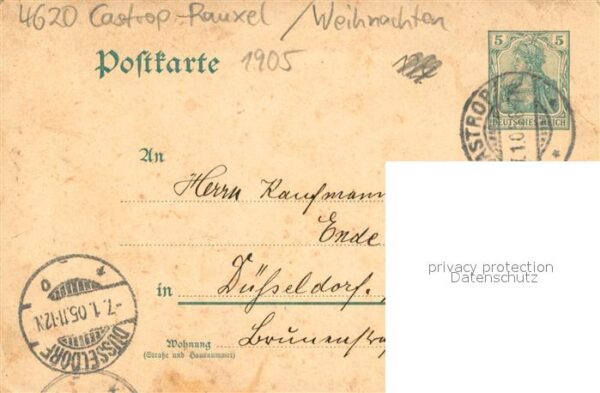 4620 Castrop-Rauxel / Weihnachten
Postkarte 1905
5 5
DEUTSCHES REICH
ASTROP
An
Herrn Kaufmann
Ende
in Düsseldorf.
Wohnung
(Straße und Hausnummer)
Brunnenstra
-7.1.05.11-12N.
DÜSSELDORF
privacy protection
Datenschutz